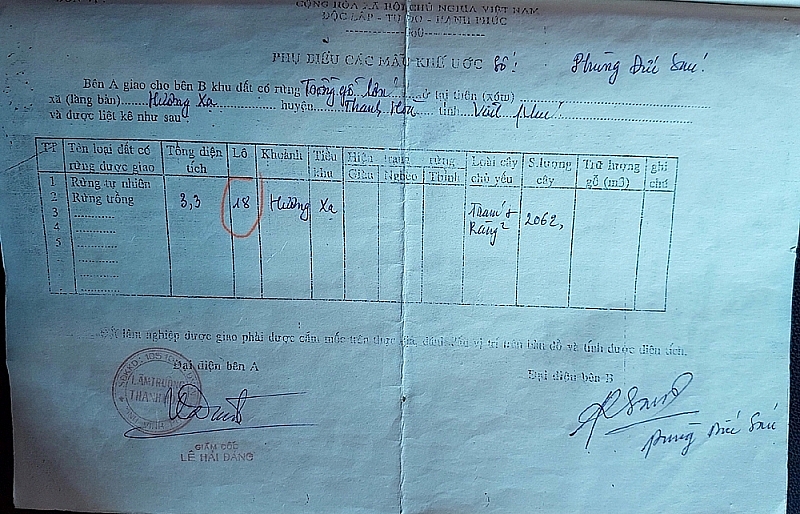 CỘNG HÒA XÃ HỘI CHỦ NGHĨA VIỆT NAM
ĐỘC LẬP - TỰ DO - HẠNH PHÚC
PHỤ BIỂU CÁC MẪU KHẾ ƯỚC Số: Phùng Đức Sáu.
Bên A giao cho bên B khu đất có rừng Trồng gỗ lớn ở tại thôn (xóm)
xã (làng bản) Hương Xạ huyện Thanh Hòa tỉnh Vĩnh Phú
và được liệt kê như sau:
TT Tên loại đất có rừng được giao Tổng diện tích Lô Khoảnh Tiểu khu Hiện trạng rừng Giàu Nghèo Thịnh Loài cây chủ yếu S.lượng cây Trữ lượng gỗ (m3) ghi chú
1 Rừng tự nhiên
2 Rừng trồng 3,3 18 Hương Xạ 2062,
3
4
5
lâm nghiệp được giao phải được cắm mốc trên thực địa, đánh dấu vị trí trên bản đồ và tính được diện tích.
Đại diện bên A
Đại diện bên B
LÂM TRƯỜNG
THANH
GIÁM ĐỐC
LÊ HẢI ĐĂNG
Phùng Đức Sáu